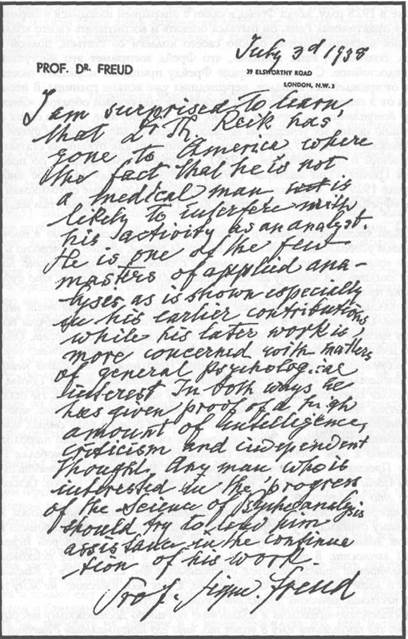 July 3d 1938
PROF. DR. FREUD
39 ELSWORTHY ROAD
LONDON, N.W.3
I am surprised to learn,
that Dr Th. Reik has
gone to America where
the fact that he is not
a medical man is
likely to interfere with
his activity as an analyst.
He is one of the few
masters of applied ana-
lyses, as is shown especially
in his earlier contributions
while his later work is
more concerned with matters
of general psychological
interest. In both ways he
has given proof of a high
amount of intelligence,
criticism and independent
thought. Any man who is
interested in the progress
of the Science of Psychoanalysis
should try do lend him
assistance in the continua
tion of his work.
Prof. Sigm. Freud